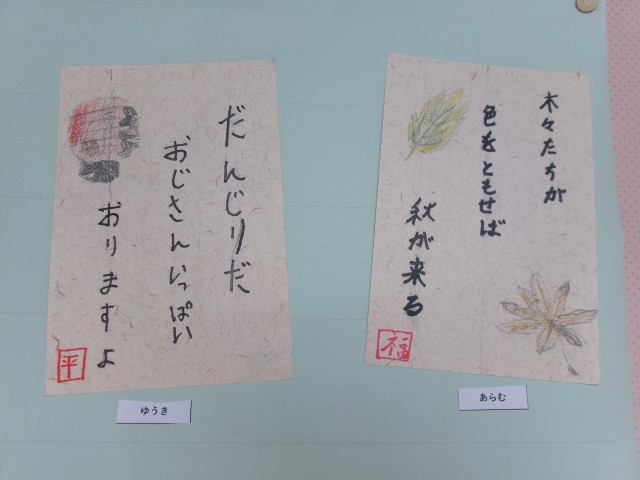 だんじりだ
おじさんいっぱい
おりますよ
平
ゆうき
木々たちが
色をともせば
秋が来る
福
あらむ